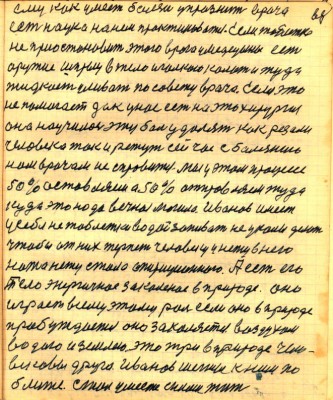 ему как умеет болезн упразнит врача
ест наука на нем практиковати. Если таблетка
не приостоновит этого врага умедецины ест
оружие шприц в тело иголкою колит и туда
жидкост сливает по совету врача. Если это
не помогает дак у нас ест на это хирургия
она научилас эту бол удалят как резали
человека так и режут сей час с болезнию
нам врачам не справится. Мы у этом процесе
50% оставляем а 50% отправляем туда
куда это надо вечна могила. Иванов имеет
у себя не таблетки водой запиват не укол делат
чтобы от них терпет человеку у нету в него
на то нету стало операционного. А ест его
тело энергичное закаленое в природе. оно
играет всему этому рол если оно в природе
пробуждается оно закаляется воздухом
водою и землею это три в природе чело-
вековы друга Иванов шегнул к ним по
ближе. Стал умест с ними жит